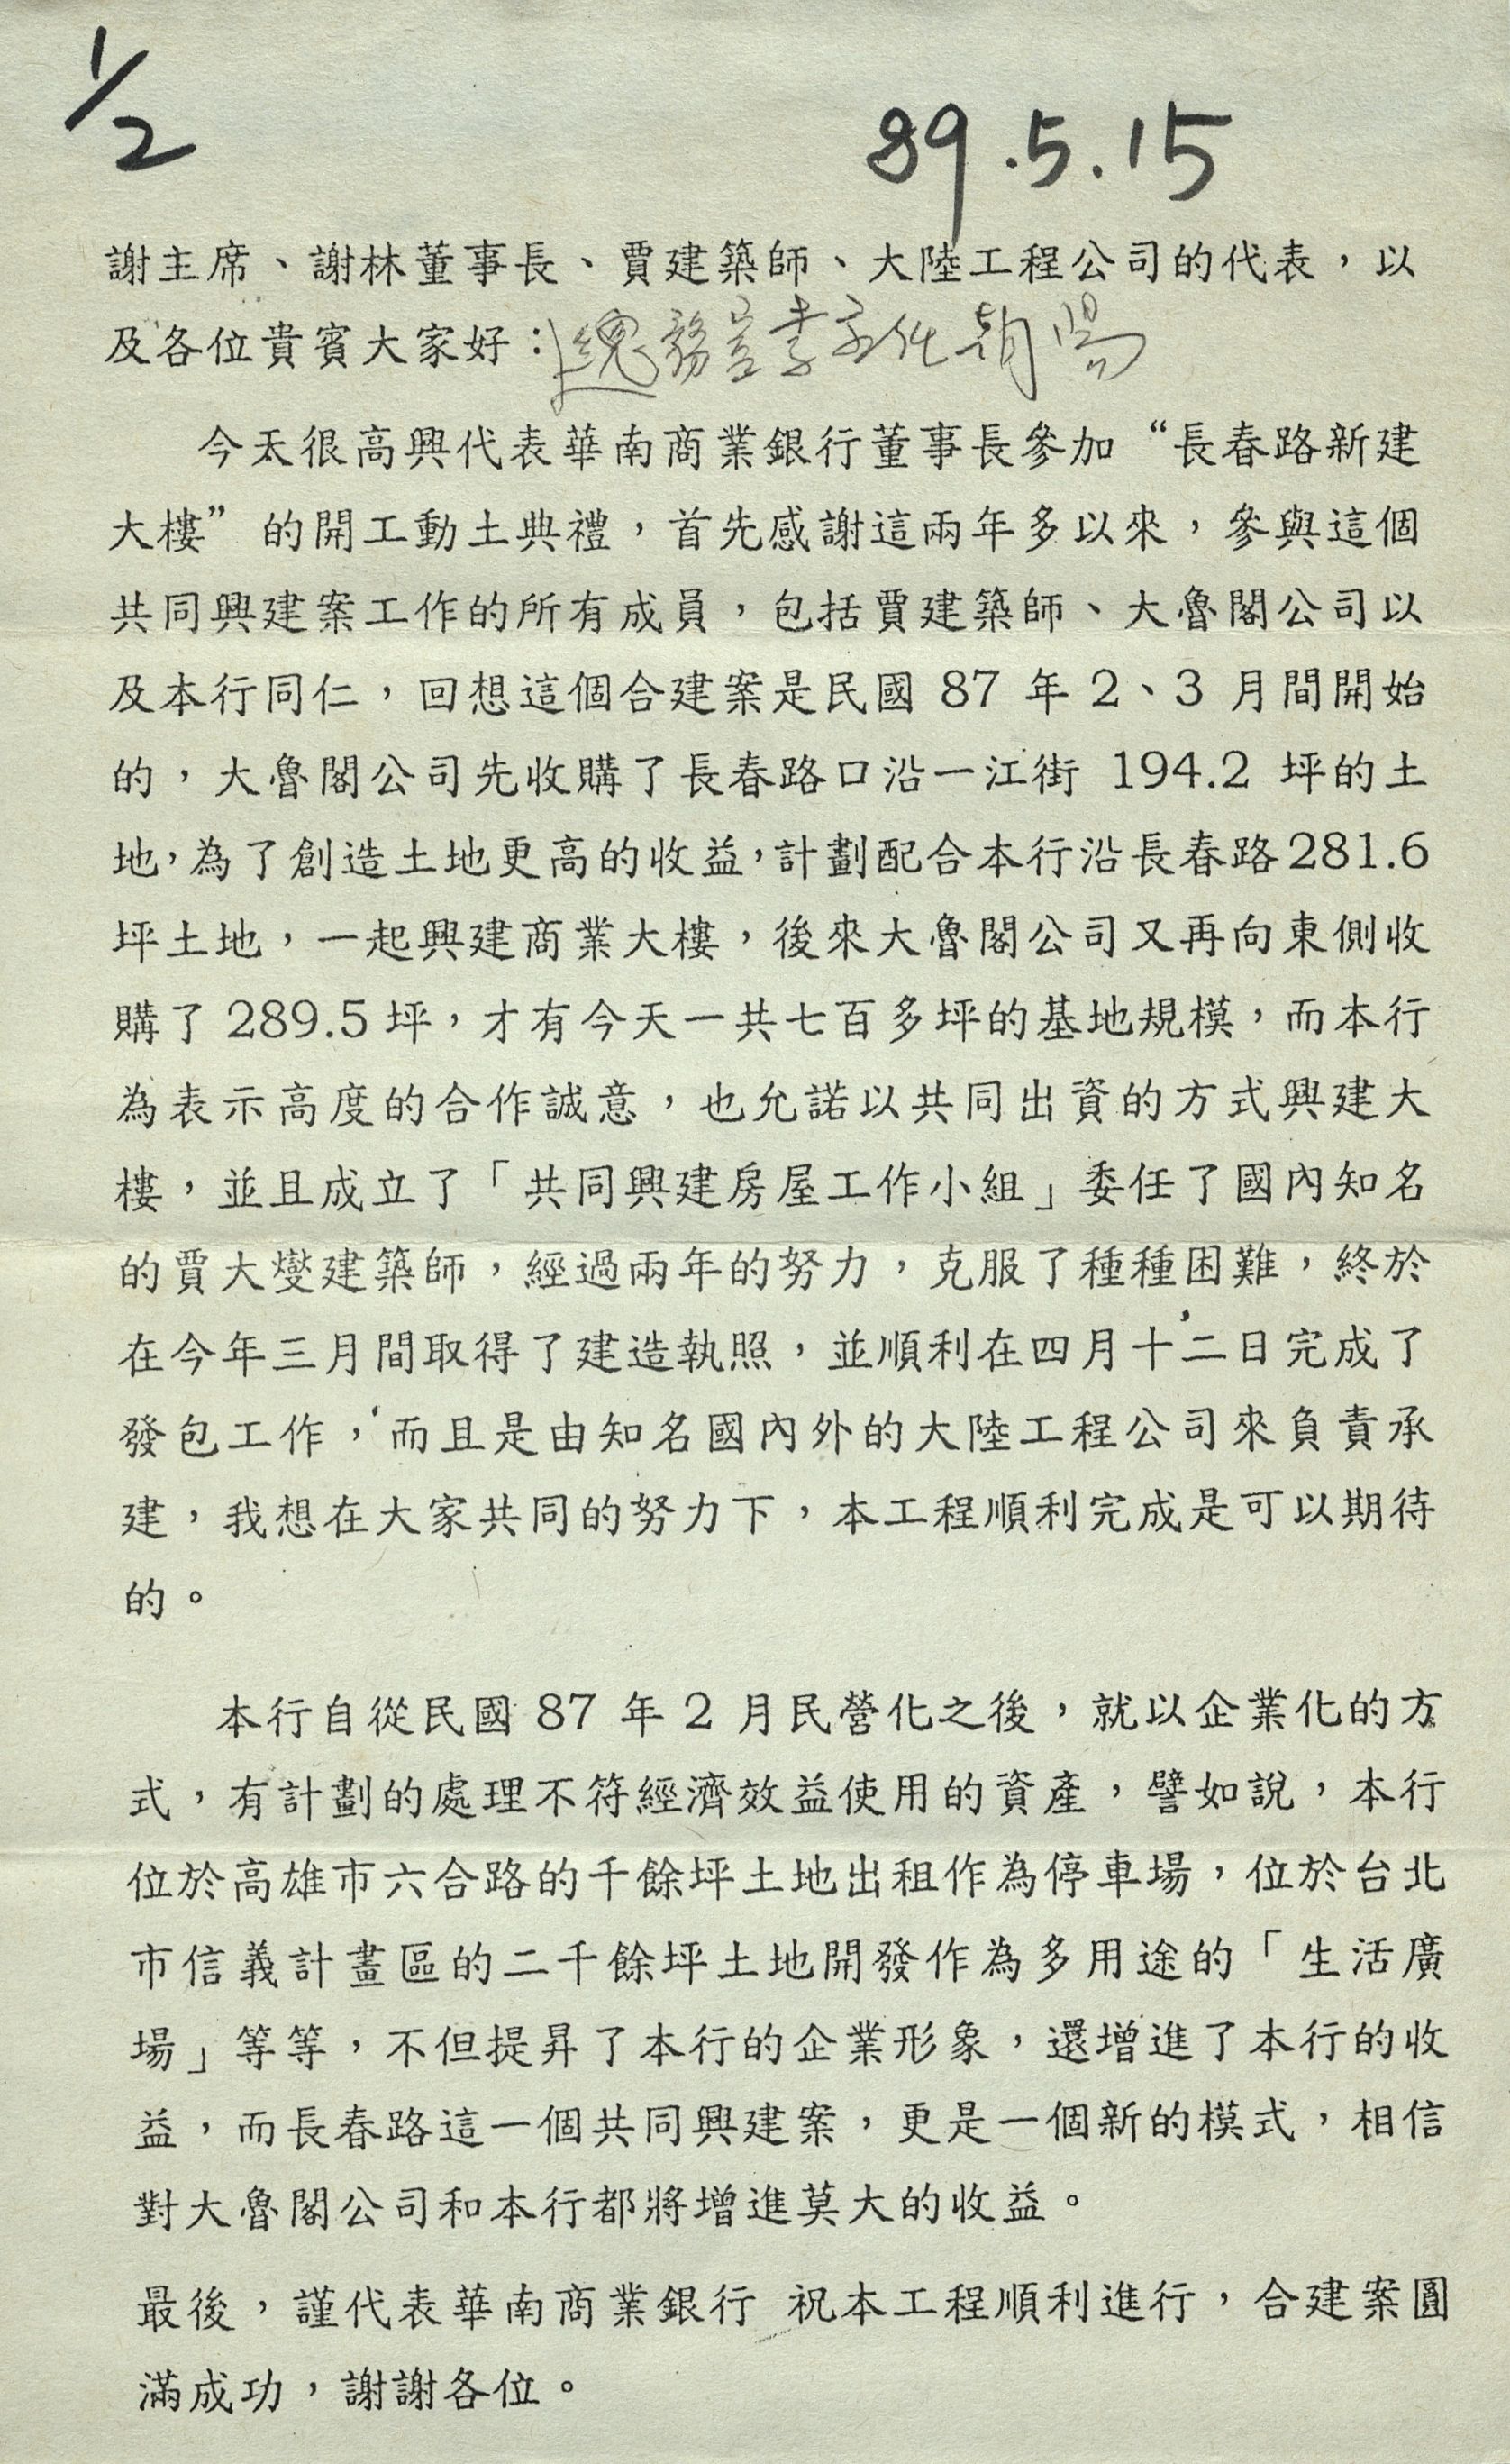 1/2
89.5.15
謝主席、謝林董事長、賈建築師、大陸工程公司的代表，以
及各位貴賓大家好：總務室李主任朝陽
今天很高興代表華南商業銀行董事長參加“長春路新建
大樓”的開工動土典禮，首先感謝這兩年多以來，參與這個
共同興建案工作的所有成員，包括賈建築師、大魯閣公司以
及本行同仁，回想這個合建案是民國 87 年 2、3 月間開始
的，大魯閣公司先收購了長春路口沿一江街 194.2 坪的土
地，為了創造土地更高的收益，計劃配合本行沿長春路281.6
坪土地，一起興建商業大樓，後來大魯閣公司又再向東側收
購了 289.5 坪，才有今天一共七百多坪的基地規模，而本行
為表示高度的合作誠意，也允諾以共同出資的方式興建大
樓，並且成立了「共同興建房屋工作小組」委任了國內知名
的賈大燮建築師，經過兩年的努力，克服了種種困難，終於
在今年三月間取得了建造執照，並順利在四月十二日完成了
發包工作，而且是由知名國內外的大陸工程公司來負責承
建，我想在大家共同的努力下，本工程順利完成是可以期待
的。
本行自從民國 87 年 2 月民營化之後，就以企業化的方
式，有計劃的處理不符經濟效益使用的資產，譬如說，本行
位於高雄市六合路的千餘坪土地出租作為停車場，位於台北
市信義計畫區的二千餘坪土地開發作為多用途的「生活廣
場」等等，不但提昇了本行的企業形象，還增進了本行的收
益，而長春路這一個共同興建案，更是一個新的模式，相信
對大魯閣公司和本行都將增進莫大的收益。
最後，謹代表華南商業銀行 祝本工程順利進行，合建案圓
滿成功，謝謝各位。